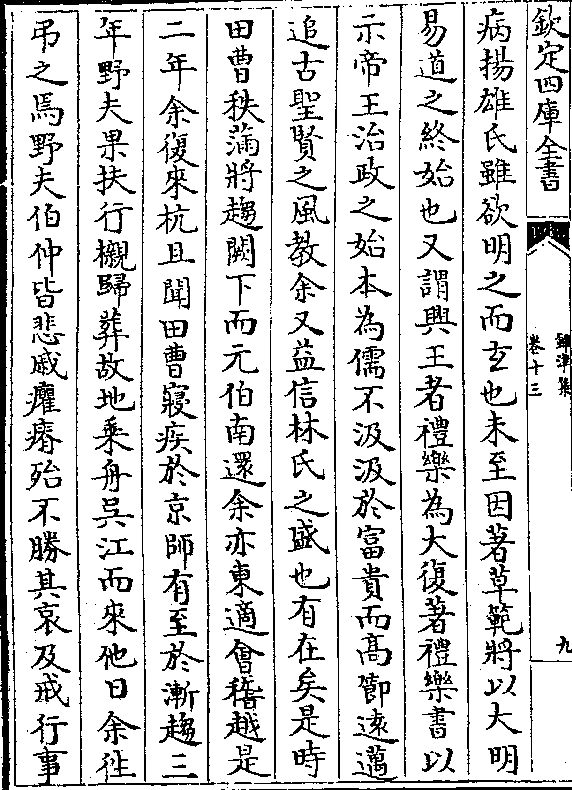 欽定四庫全書
鐔津集
卷十三
九
病揚雄氏雖欲明之而玄也未至因著草範將以大明
易道之終始也又謂興王者禮樂為大復著禮樂書以
示帝王治政之始本為儒不汲汲於富貴而高節遠邁
追古聖賢之風教余又益信林氏之盛也有在矣是時
田曹秩滿將趨闕下而元伯南還余亦東適會稽越是
二年余復來杭且聞田曹寢疾於京師有至於漸趨三
年野夫果扶行櫬歸葬故地乗舟吳江而來他日余徃
弔之焉野夫伯仲皆悲戚癯瘠殆不勝其哀及戒行事